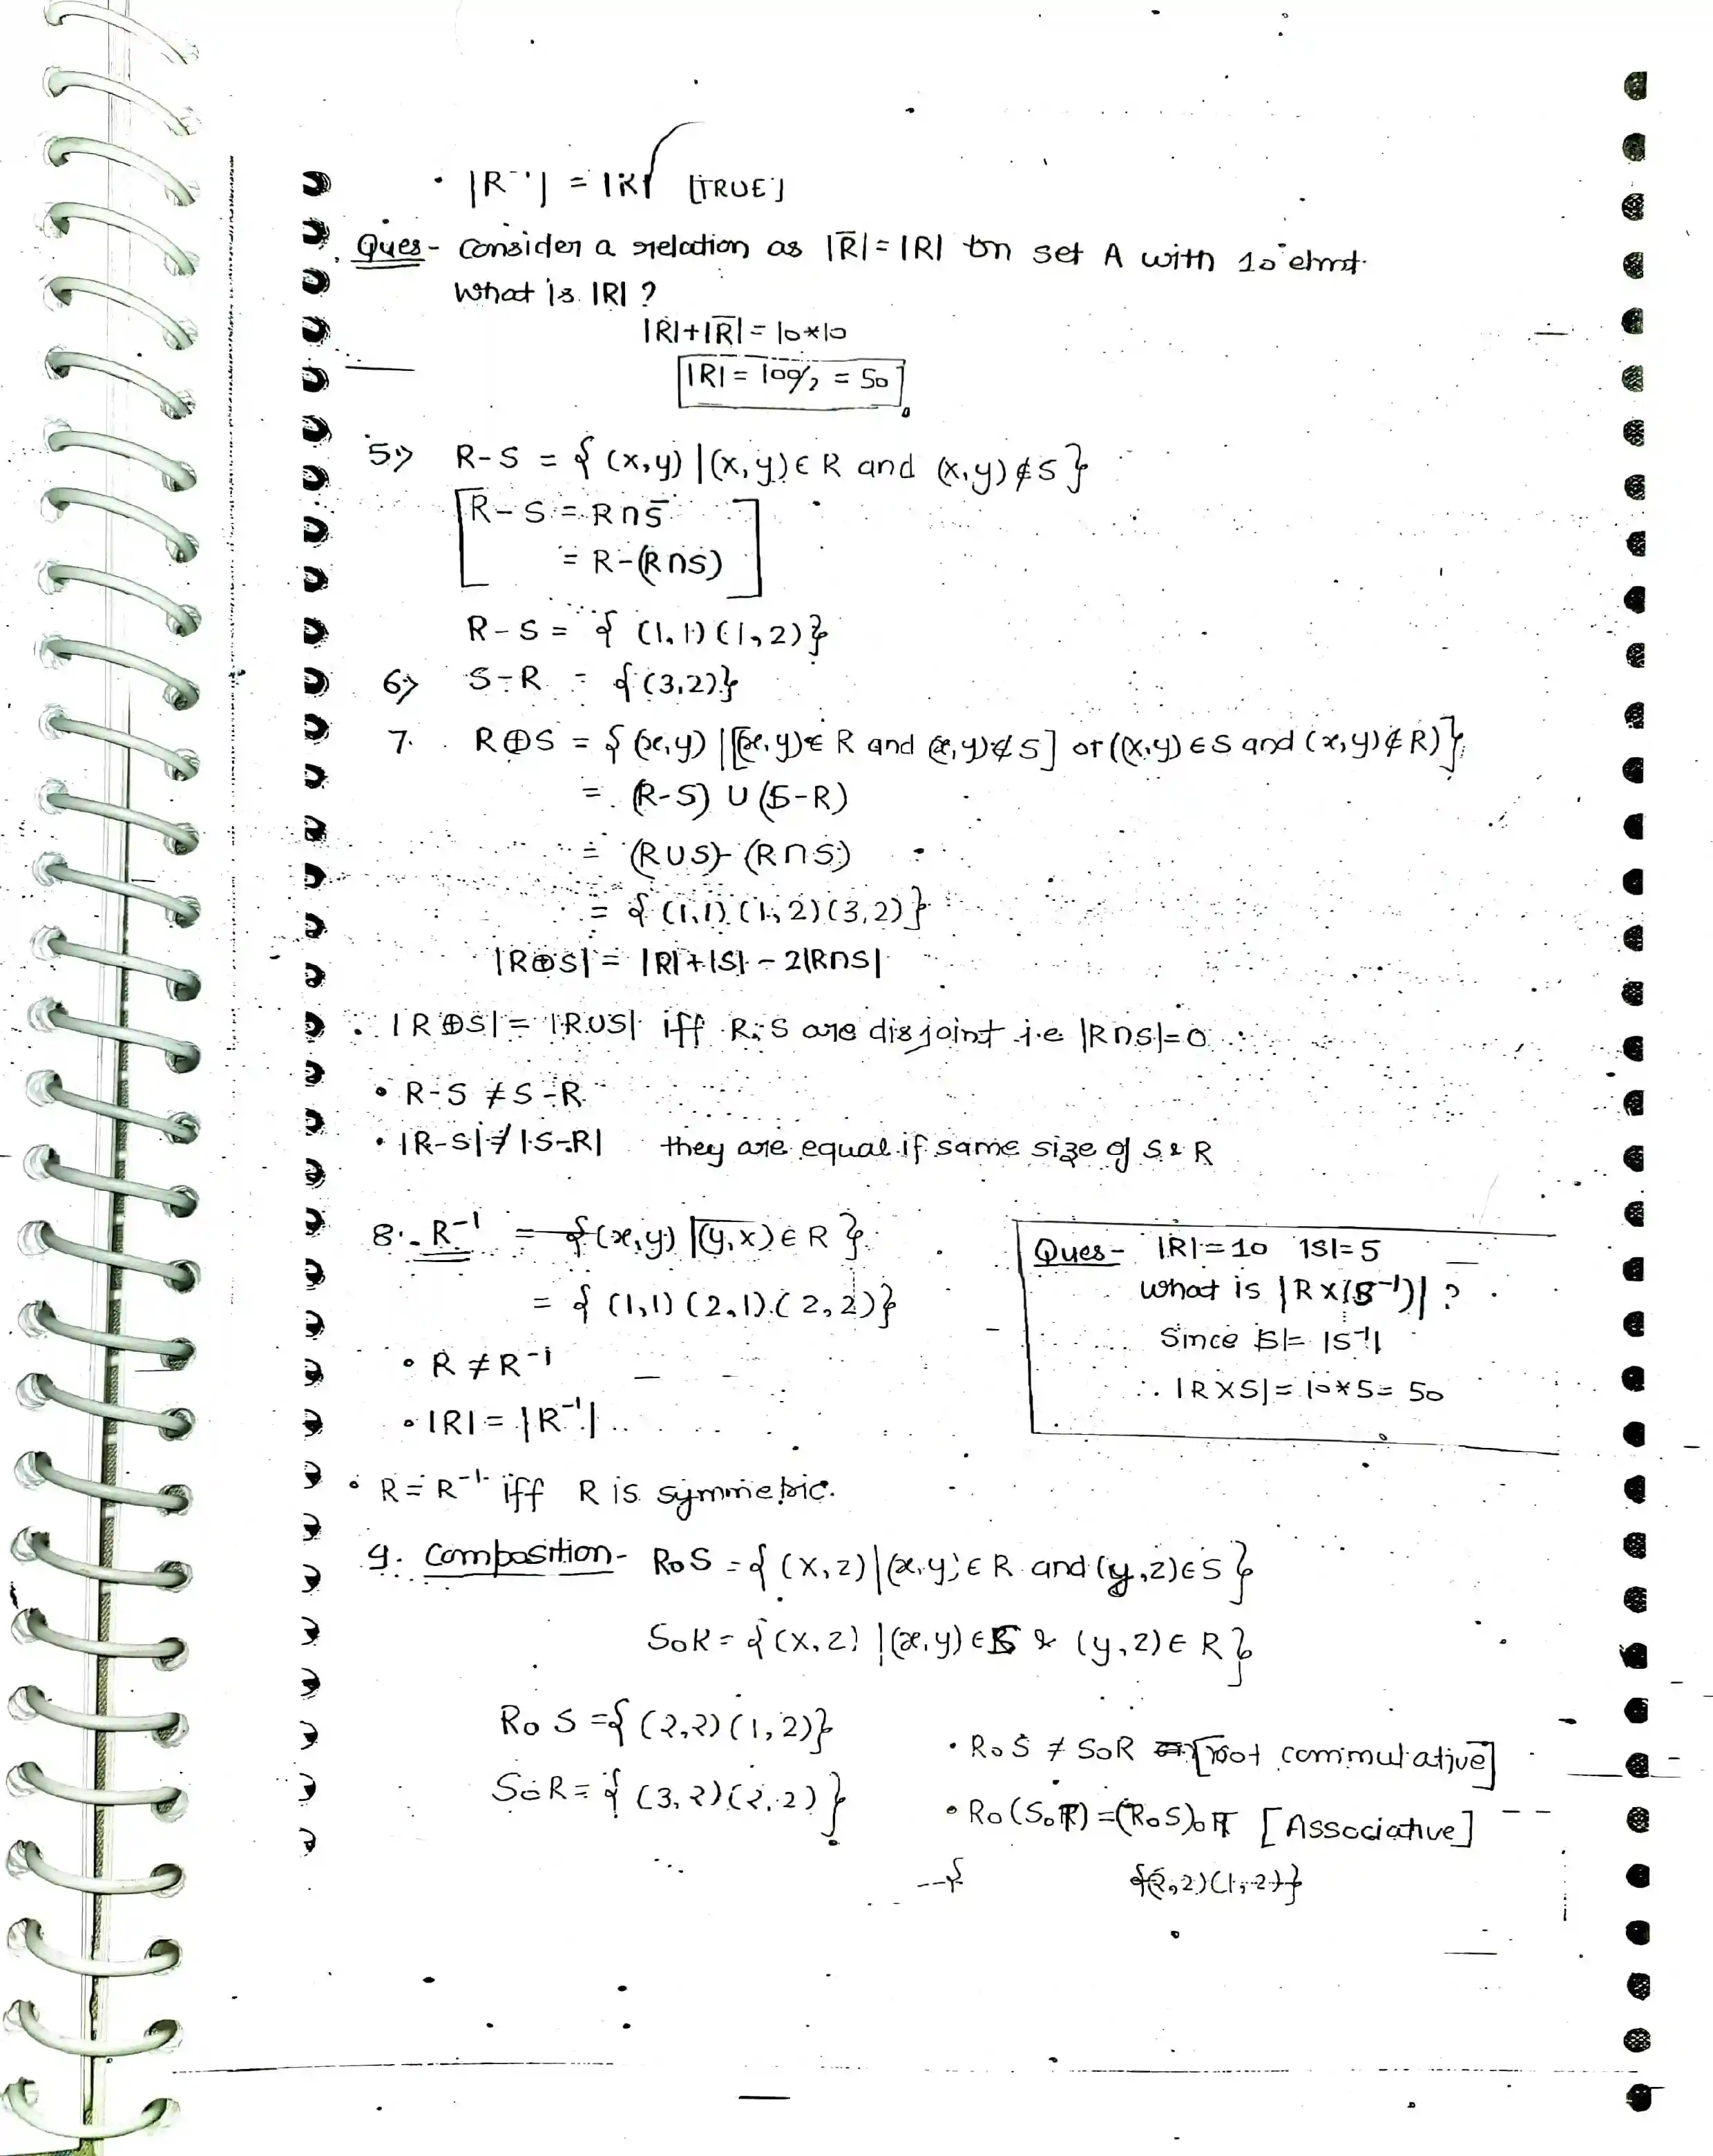 • |R⁻¹| = |R| [TRUE]
Ques - Consider a relation as |R̅| = |R| on set A with 10 elmt.
What is |R| ?
|R|+|R̅| = 10*10
|R| = 100/2 = 50
5.> R-S = { (x,y) | (x,y) ∈ R and (x,y) ∉ S }
R-S = R∩S̅
= R-(R∩S)
R-S = { (1,1) (1,2) }
6> S-R = { (3,2) }
7. R⊕S = { (x,y) | [(x,y) ∈ R and (x,y) ∉ S] or ((x,y) ∈ S and (x,y) ∉ R) }
= (R-S) ∪ (S-R)
= (R∪S) - (R∩S)
= { (1,1) (1,2) (3,2) }
|R⊕S| = |R|+|S| - 2|R∩S|
• |R⊕S| = |R∪S| iff R, S are disjoint i.e |R∩S|=0
• R-S ≠ S-R
• |R-S| ≠ |S-R| they are equal if same size of S & R
8. R⁻¹ = { (x,y) | (y,x) ∈ R }
= { (1,1) (2,1) (2,2) }
• R ≠ R⁻¹
• |R| = |R⁻¹|
Ques - |R|=10 |S|=5
What is |R×(S⁻¹)| ?
Since |S| = |S⁻¹|
∴ |R×S| = 10*5 = 50
• R = R⁻¹ iff R is symmetric.
9. Composition - R∘S = { (x,z) | (x,y) ∈ R and (y,z) ∈ S }
S∘R = { (x,z) | (x,y) ∈ S & (y,z) ∈ R }
R∘S = { (2,2) (1,2) }
S∘R = { (3,2) (2,2) }
• R∘S ≠ S∘R [not commutative]
• R∘(S∘T) = (R∘S)∘T [Associative]
{(2,2) (1,2)}